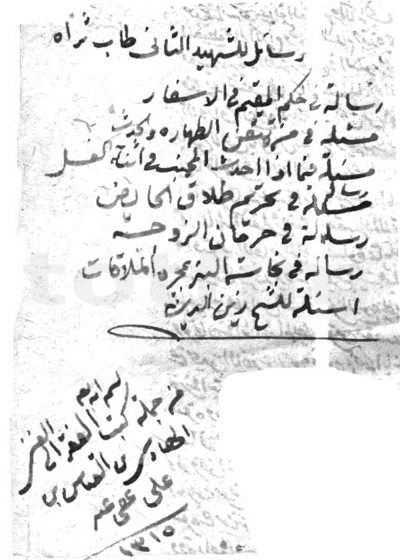 رسائل للشهيد الثانى طاب ثراه
رسالة في حكم المقيم في الاسفار
مسئلة في من تيقن الطهاره والحدث
مسئلة فيما اذا احدث المجنب في اثناء الغسل
رسالة
مسئلة في تحريم طلاق الحايض
رسالة في حرمان الزوجة
رساله في نجاسة البئر بمجرد الملاقات
اسئلة للشيخ زين الدين
من جملة كتب الفقير الى
الهادي بن العباس بن
علي عفي عنه
١٣١٥